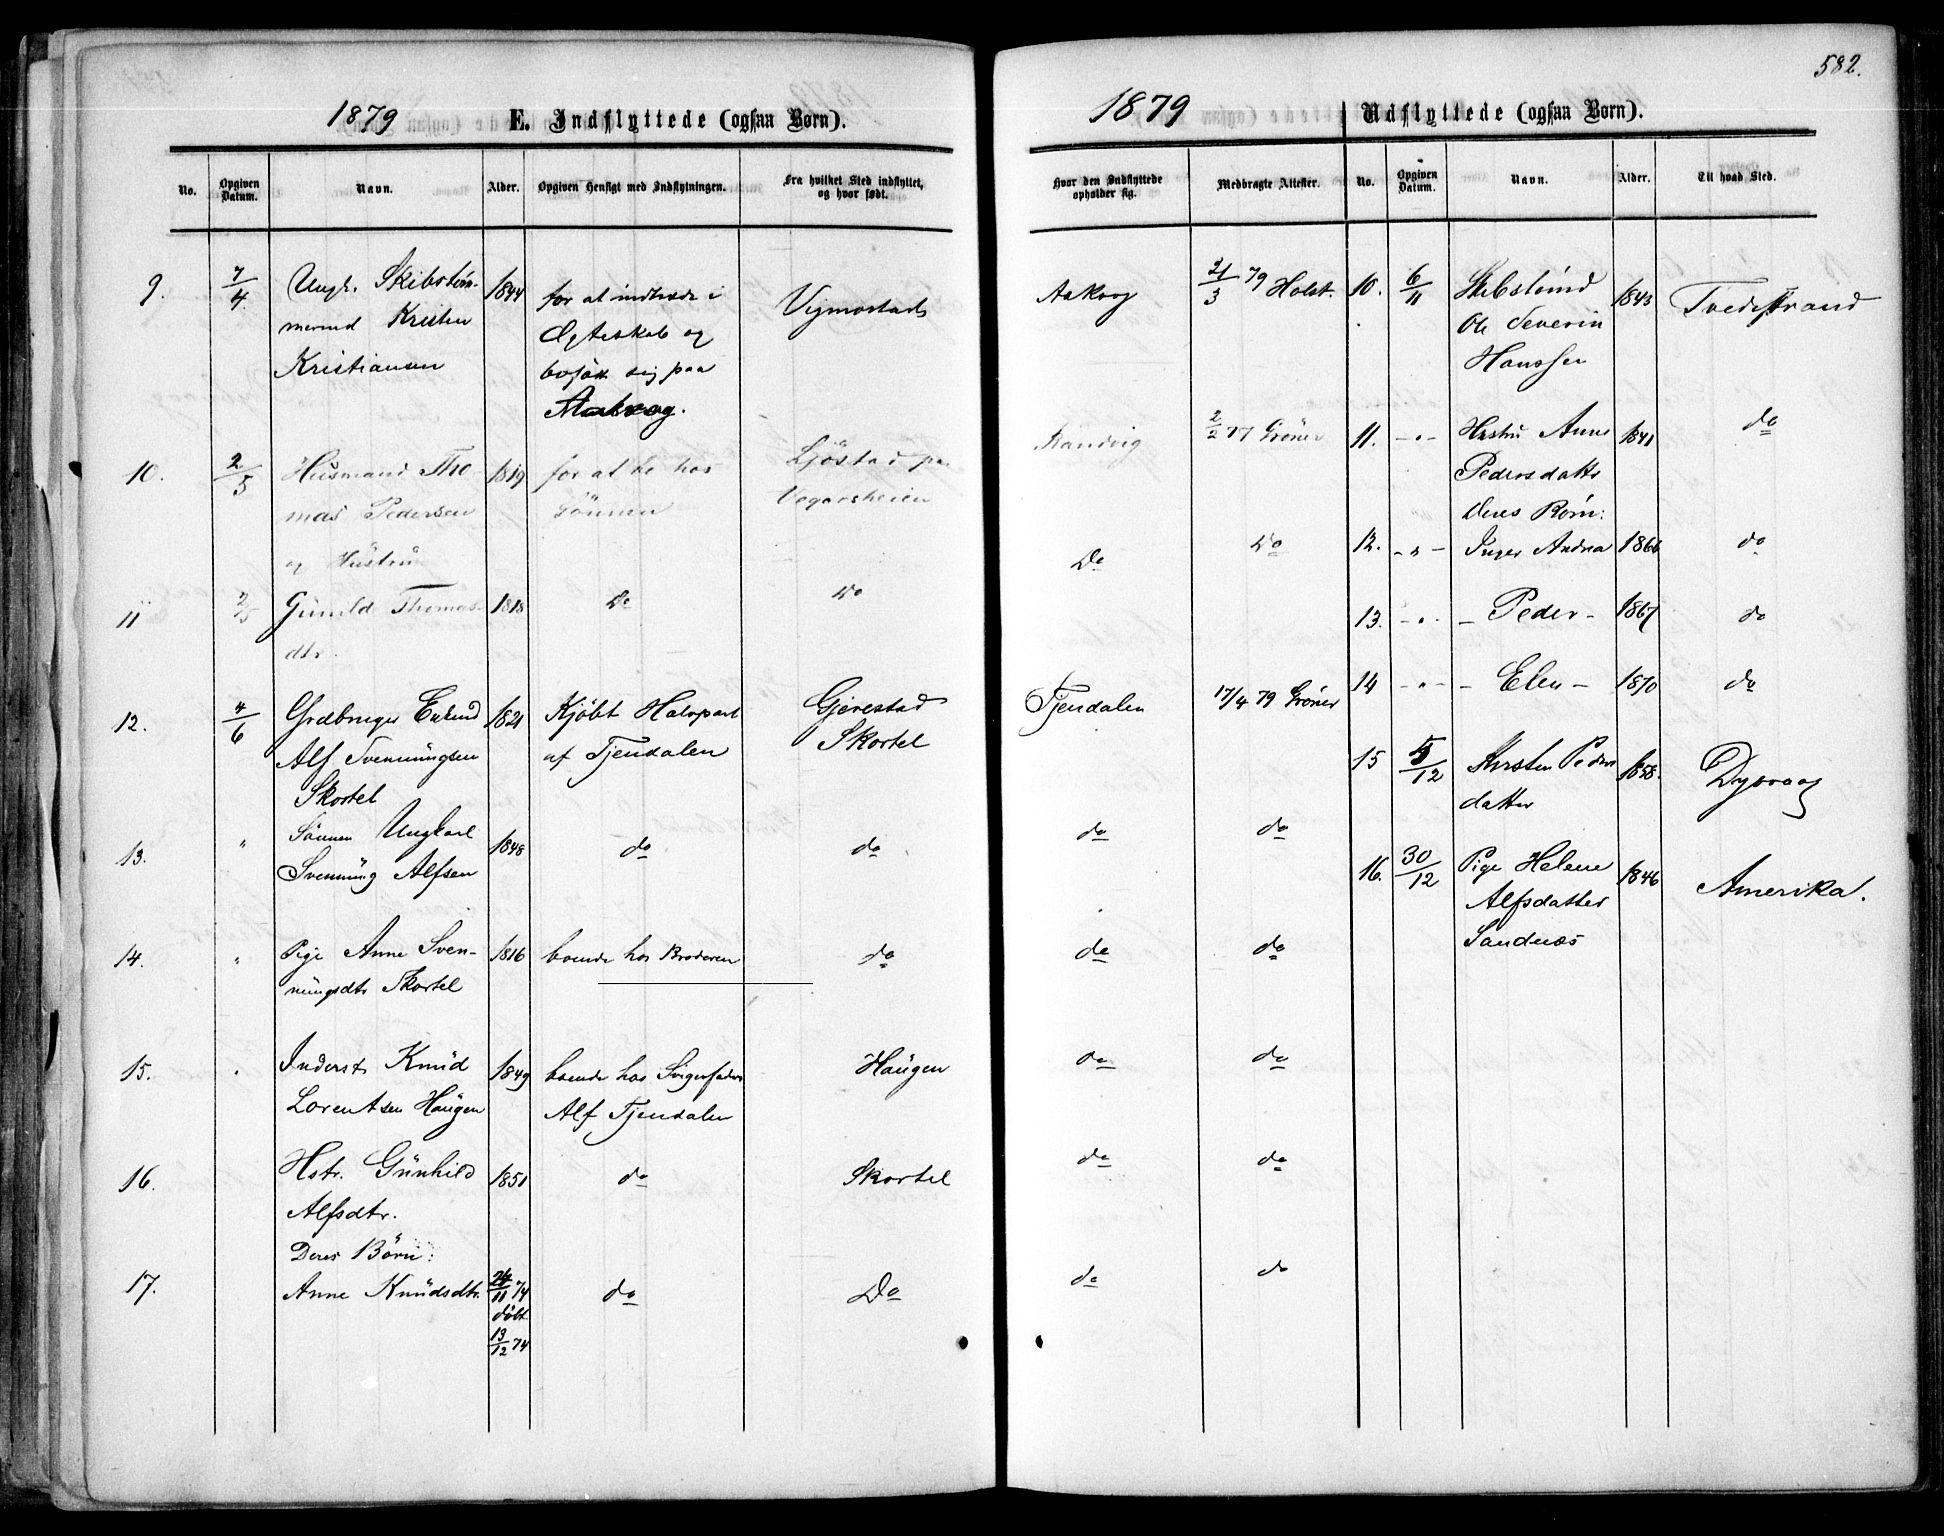 582.
1879 E. Indflyttede (ogsaa Børn).
No. Opgiven Datum. Navn. Alder. Opgiven Hensigt med Indflytningen. Fra hvilket Sted indflyttet, og hvor født.
9. 7/4 Ungk. Skibstøm- 1844 for at indtræde i Vegmostad
mermd Kristen Ægteskab og
Kristiansen bosætte sig paa
Aakvag.
10. 2/5 Husmand Tho- 1819 for at bo hos Ljøstad pa
mas Pedersen Sønnen Vegarsheien
og Hustru
11 2/5 Gunild Thomas- 1818 Do Do
dtr.
12. 4/6 Grdbruger Enkemd 1821 Kjøbt Halvpart Gjerestad
Alf Svennungsen af Tjendalen Skortel
Skortel
13. " Sønnen Ungkarl 1848 do do
Svennung Alfsen
14. " Pige Anne Sven- 1816 boende hos Broderen do
nungsdtr Skortel
15. " Inderst Knud 1849 boende hos Svigerfader Haugen
Lorentsen Haugen Alf Tjendalen
16. Hstr. Gunhild 1851 do Skortel
Alfsdtr.
Deres Børn:
17. Anne Knudsdtr. 24/11 74 do Do
døbt
13/12 74
1879 Udflyttede (ogsaa Børn).
Hvor den Indflyttede opholder sig. Medbragte Attester. No. Opgiven Datum. Navn. Alder. Til hvad Sted.
Aakvag 21/3 79 Holst. 10. 6/11 Skibstømd 1843 Tvedestrand
Ole Severin
Hanssen
Sandvig 2/2 77 Grøner 11. -"- Hustru Anne 1841 do
Pedersdatter
Deres Børn:
Do Do 12. -"- Inger Andrea 1866 do
13. -"- - Peder - 1867 do
Tjendalen 17/4 79 Grøner 14 -"- - Elen - 1870 do
15 5/12 Kirsten Peders 1858. Dypvaag
datter
do do
16. 30/12 Pige Helene 1846 Amerika.
Alfsdatter
Sandnæs
do do
do do
do do
do do